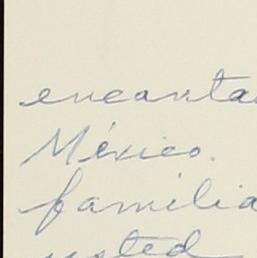 encanta
México.
familia
usted